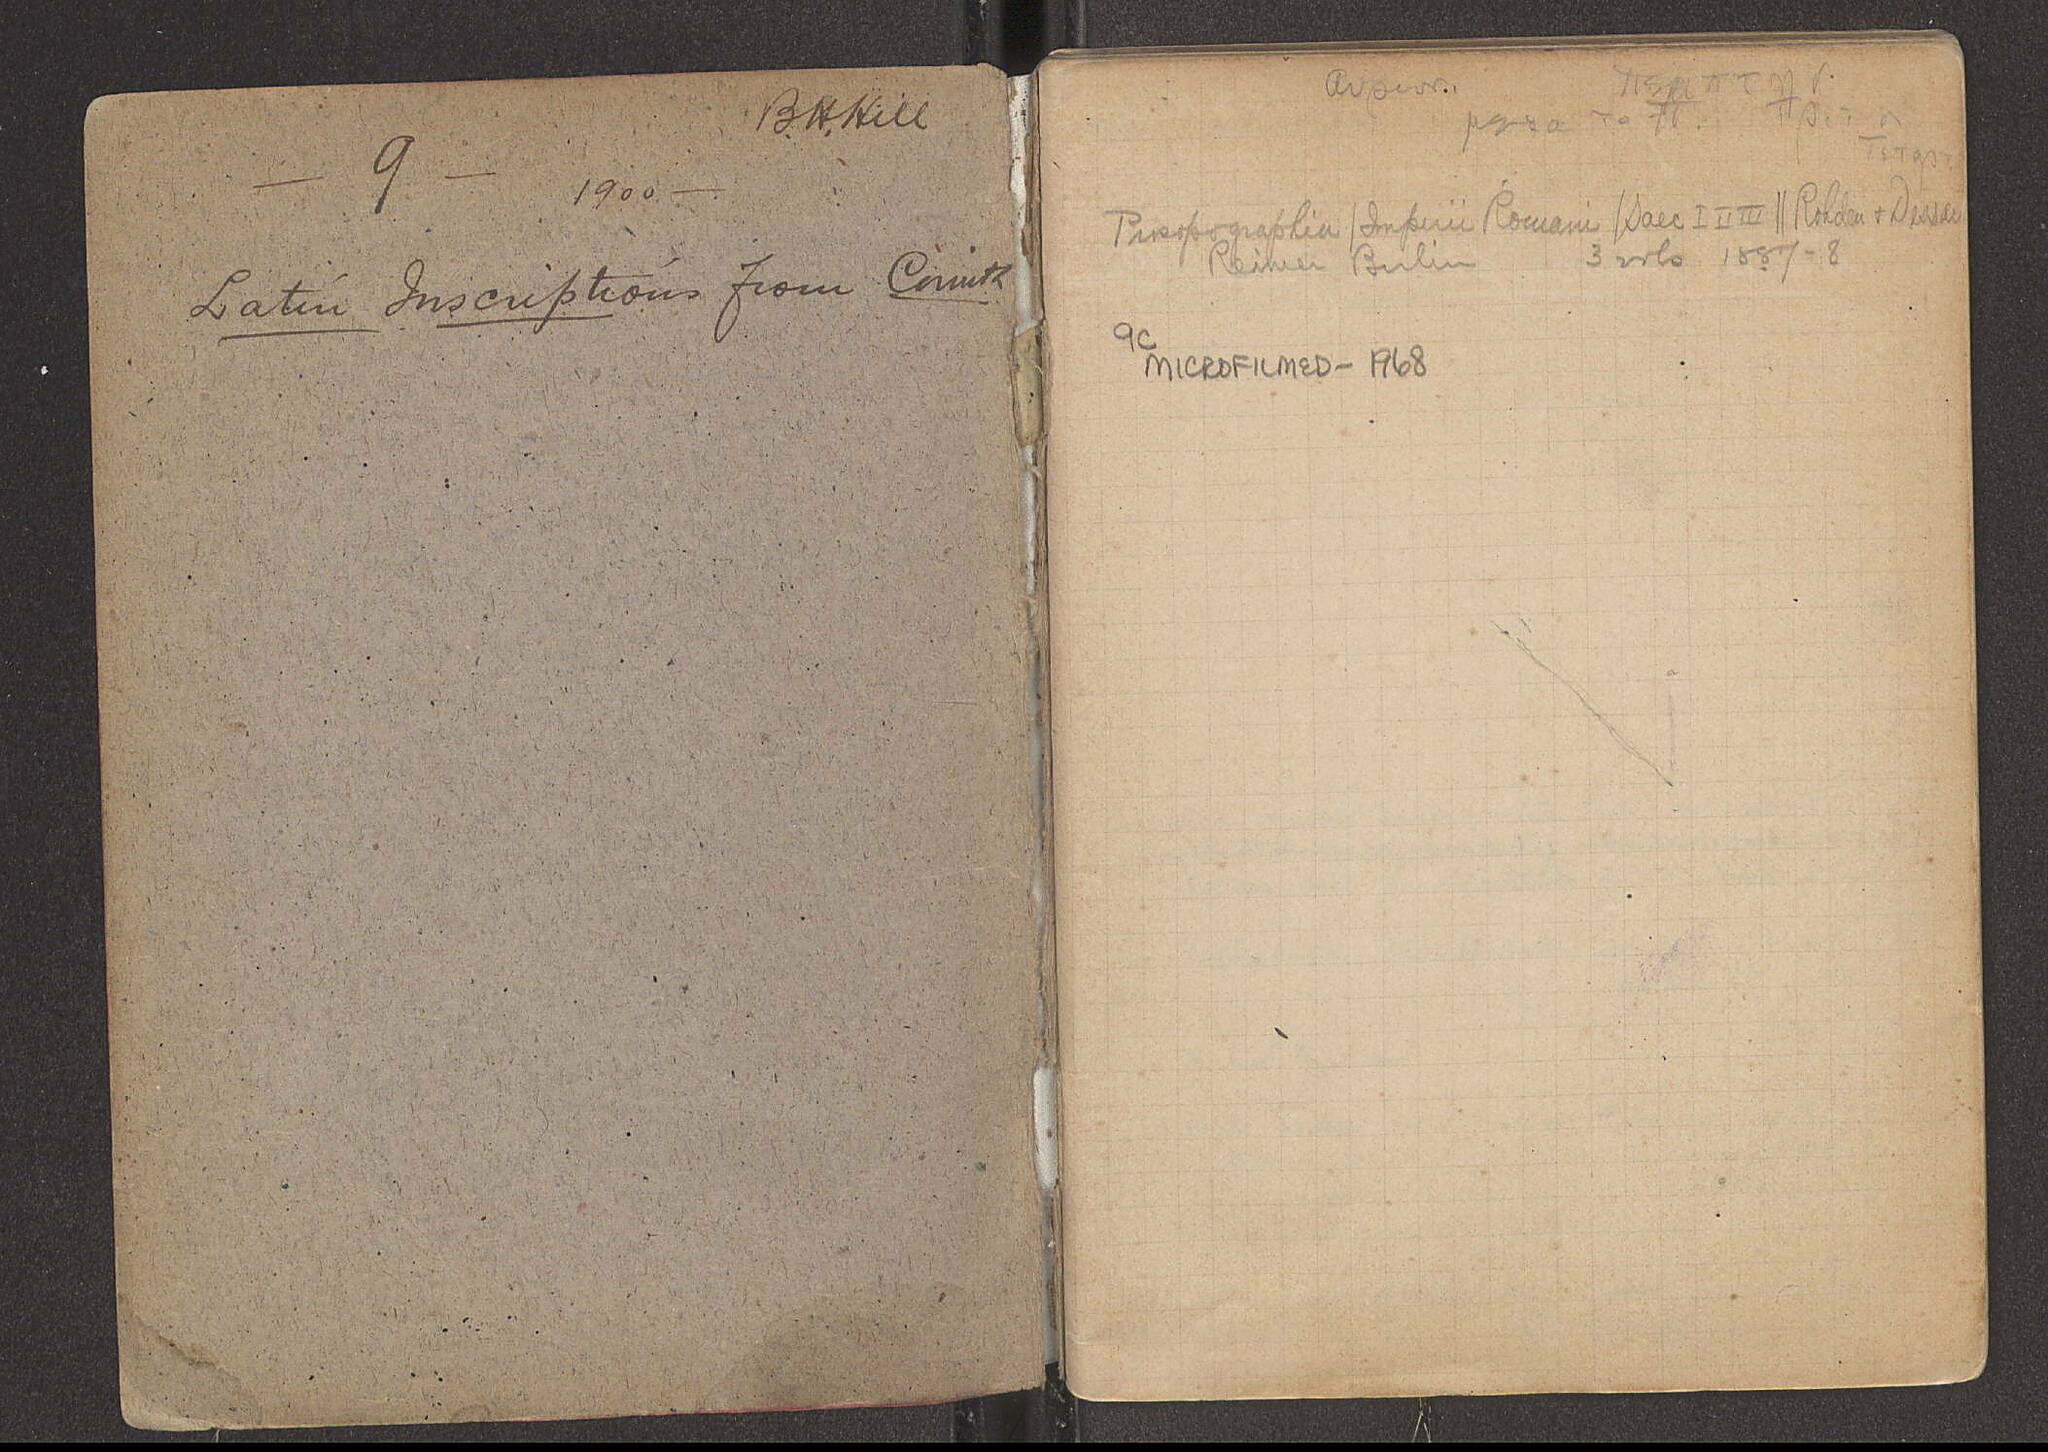 B.H. Hill
— 9 —
1900 —
Latin Inscriptions from Corinth
αυριον.
μετα το π.
Prosopographia / Imperii Romani / Saec I II III || Rohden + Dessau
Reimer Berlin 3 vols 1897-8
9C
MICROFILMED - 1968